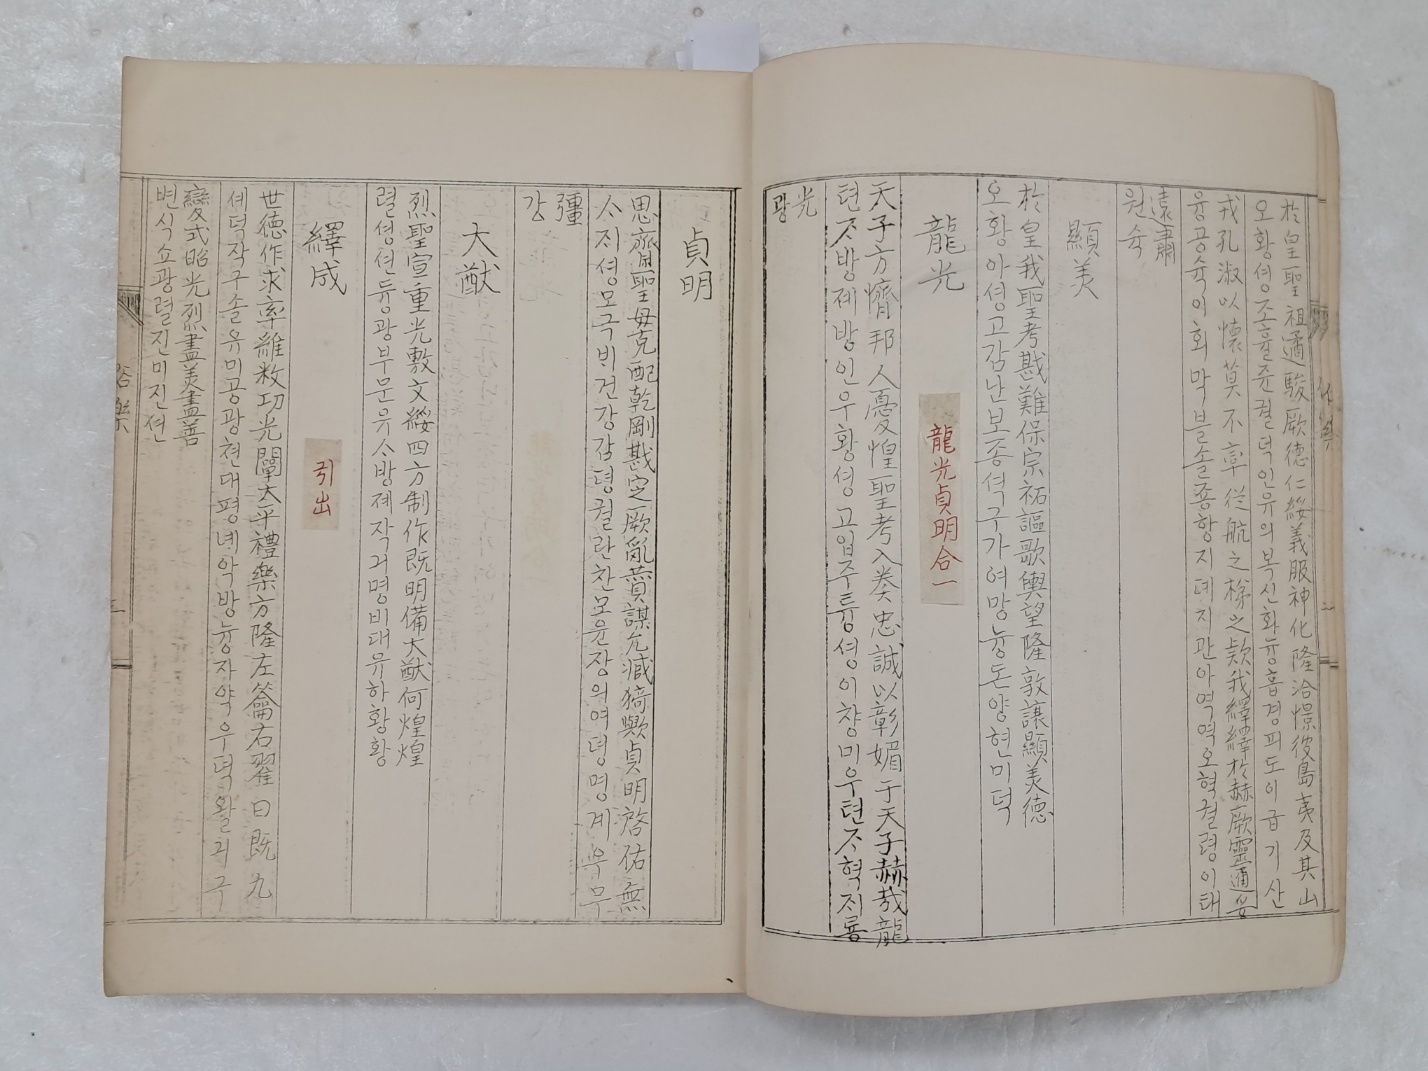 於皇聖祖遹駿厥德仁綏義服神化隆洽憬彼島夷及其山
오황셩조휼쥰궐덕인유의복신화륭흡경피도이급기산
戎孔淑以懷莫不率從航之梯之款我繹繹於赫厥靈遹妥
융공슉이회막블솔죵항지뎨지관아역역오혁궐령이태
遠肅
원슉
顯美
於皇我聖考戡難保宗祏謳歌輿望隆敦讓顯美德
오황아셩고감난보종셕구가여망늉돈양현미덕
龍光
龍光貞明合一
天子方懠邦人憂惶聖考入奏忠誠以彰媚于天子赫哉龍
텬ᄌᆞ방졔방인우황셩고입주튱셩이챵미우텬ᄌᆞ혁ᄌᆡ룡
光
광
貞明
思齊聖母克配乾剛戡定厥亂贊謀允臧猗歟貞明啓佑無
ᄉᆞᄌᆡ셩모극비건강감뎡궐란찬모윤장의여뎡명계우무
彊
강
大猷
烈聖宣重光敷文綏四方制作旣明備大猷何煌煌
렬셩션듕광부문유ᄉᆞ방졔작긔명비대유하황황
繹成
引出
世德作求率維敉功光闡太平禮樂方隆左籥右翟曰旣九
셰덕작구솔유미공광쳔태평녜악방늉자약우뎍왈긔구
變式昭光烈盡美盡善
변식쇼광렬진미진션
俗樂
三